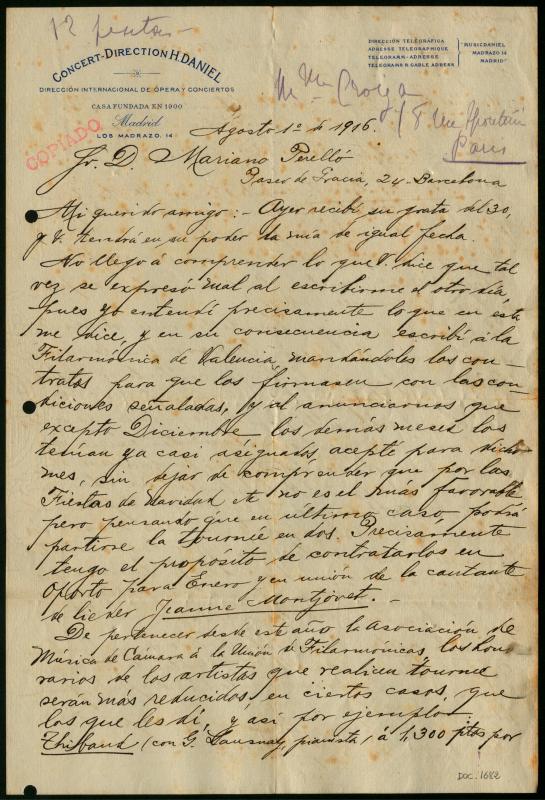 12 pesetas
CONCERT-DIRECTION H. DANIEL
DIRECCIÓN INTERNACIONAL DE ÓPERA Y CONCIERTOS
CASA FUNDADA EN 1900
Madrid
LOS MADRAZO, 14
DIRECCIÓN TELEGRÁFICA
ADRESSE TELEGRAPHIQUE
TELEGRAMM-ADRESSE
TELEGRAMS & CABLE ADRESS
"MUSICDANIEL
MADRAZO 14
MADRID"
18 rue
Paris
COPIADO
Agosto 1º de 1916.
Sr. D. Mariano Perelló
Paseo de Gracia, 24 - Barcelona
Mi querido amigo: - Ayer recibí su grata del 30,
y V. tendrá en su poder la mía de igual fecha.
No llego á comprender lo que V. dice que tal
vez se expresó mal al escribirme el otro día,
pues yo entendí precisamente lo que en esta
me dice, y en su consecuencia escribí á la
Filarmónica de Valencia, mandándoles los con-
tratos para que los firmasen con las con
diciones señaladas, y al anunciarnos que
excepto Diciembre los demás meses los
tenían ya casi asegurados, acepté para dicho
mes, sin dejar de comprender que por las
Fiestas de Navidad etc no es el más favorable
pero pensando que en último caso podría
partirse la tournée en dos. Precisamente
tengo el propósito de contratarlos en
Oporto para Enero y en unión de la cantante
de lieder Jeanne Montjovet. -
De pertenecer desde este año la Asociación de
Música de Cámara á la Unión de Filarmónicas, los hono
rarios de los artistas que realicen tournée
serán más reducidos, en ciertos casos, que
los que les dí, y así por ejemplo
Thibaud (con G. pianista) á 1,300 ptas por
DOC. 1682